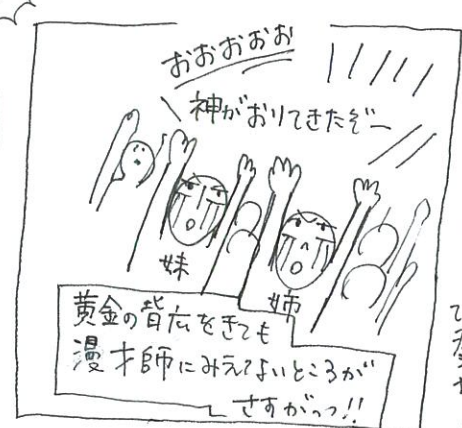 おおおおお
神がおりてきたぞー
妹
姉
黄金の背広をきても
漫才師にみえないところが
さすがっっ!!